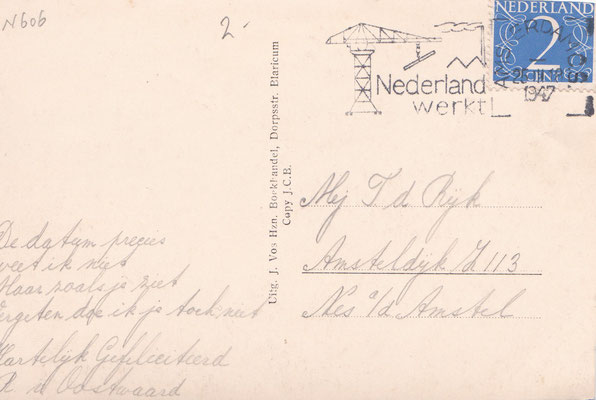 N606
2-
NEDERLAND
2
CENT
AMSTERDAM
1947
Nederland
werkt!
Uitg. J. Vos Hzn. Boekhandel, Dorpsstr. Blaricum
Copy J.C.B.
Mej T d Rijk
Amsteldijk Z 113
Nes a/d Amstel
De datum precies
weet ik niet
Maar zoals je ziet
Vergeten doe ik je toch niet
Hartelijk Gefeliciteerd
Oostwaard